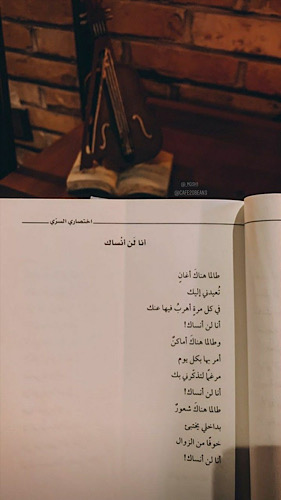 @CAFE2DREAM3
اختصاري السرّي
انا لَن أنْساك
طالما هناكَ أغانٍ
تُعيدني إليك
في كل مرةٍ أهربُ فيها عنك
أنا لن أنساك!
وطالما هناكَ أماكنٌ
أمر بها بكلِ يوم
مرغمًا لتذكّرني بك
أنا لن أنساك!
طالما هناكَ شعورٌ
بداخلي يختبئ
خوفًا من الزوال
أنا لن أنساك!